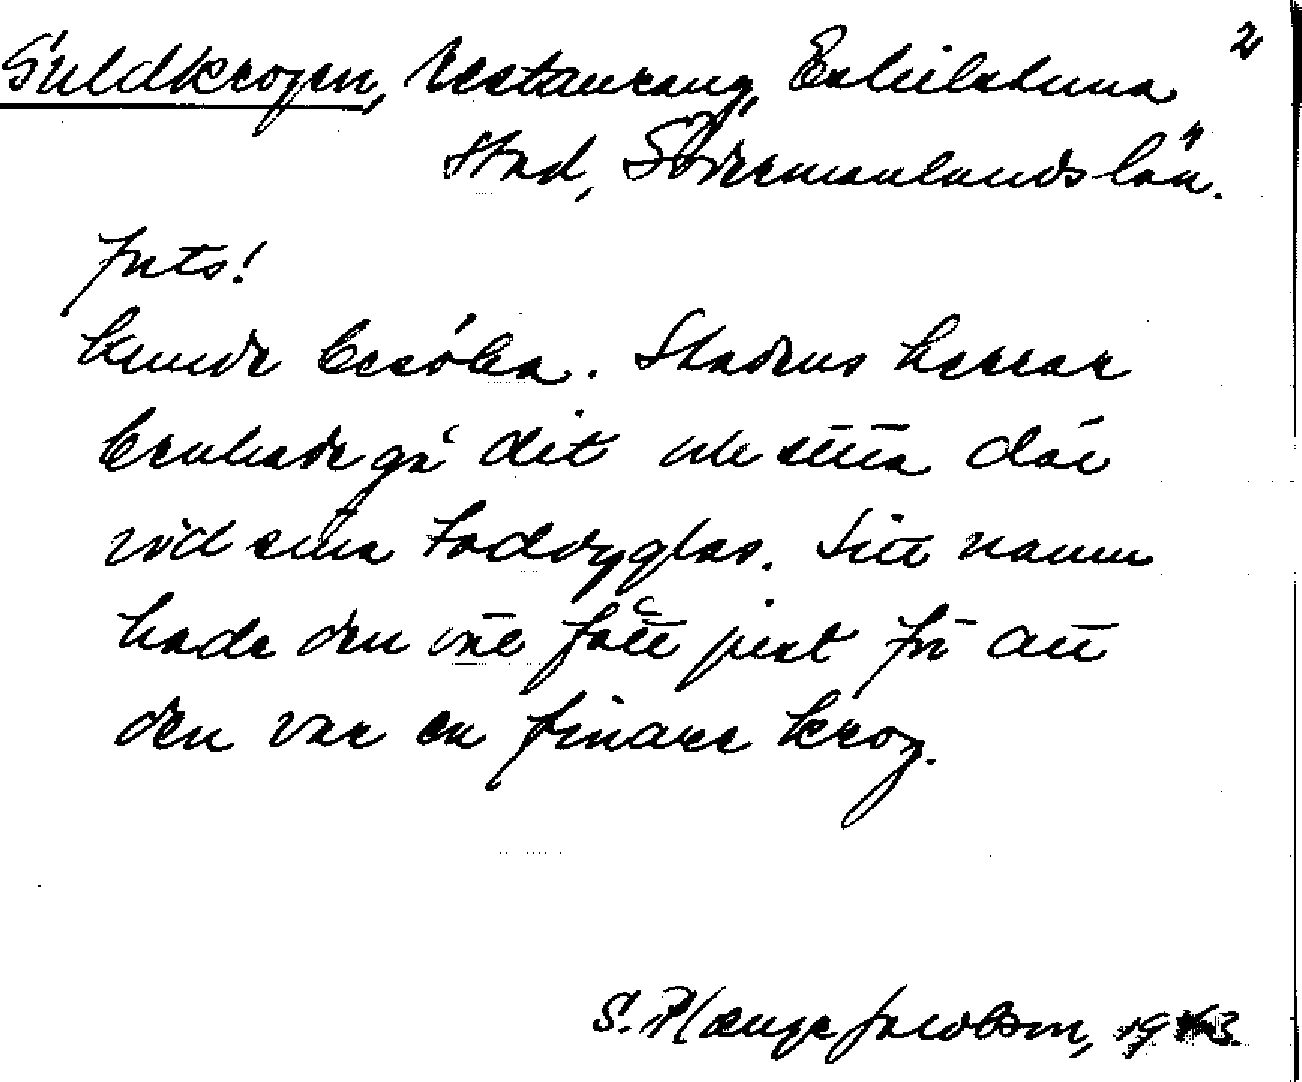 2
Guldkrogen, Restaurang, Eskilstuna
stad, Södermanlands län.
Forts!
kunde besöka. Stadens herrar
brukade gå dit och sitta där
vid sina toddyglas. Sitt namn
hade den väl fått just för att
den var en finare krog.
S. Plænge Jacobson, 19